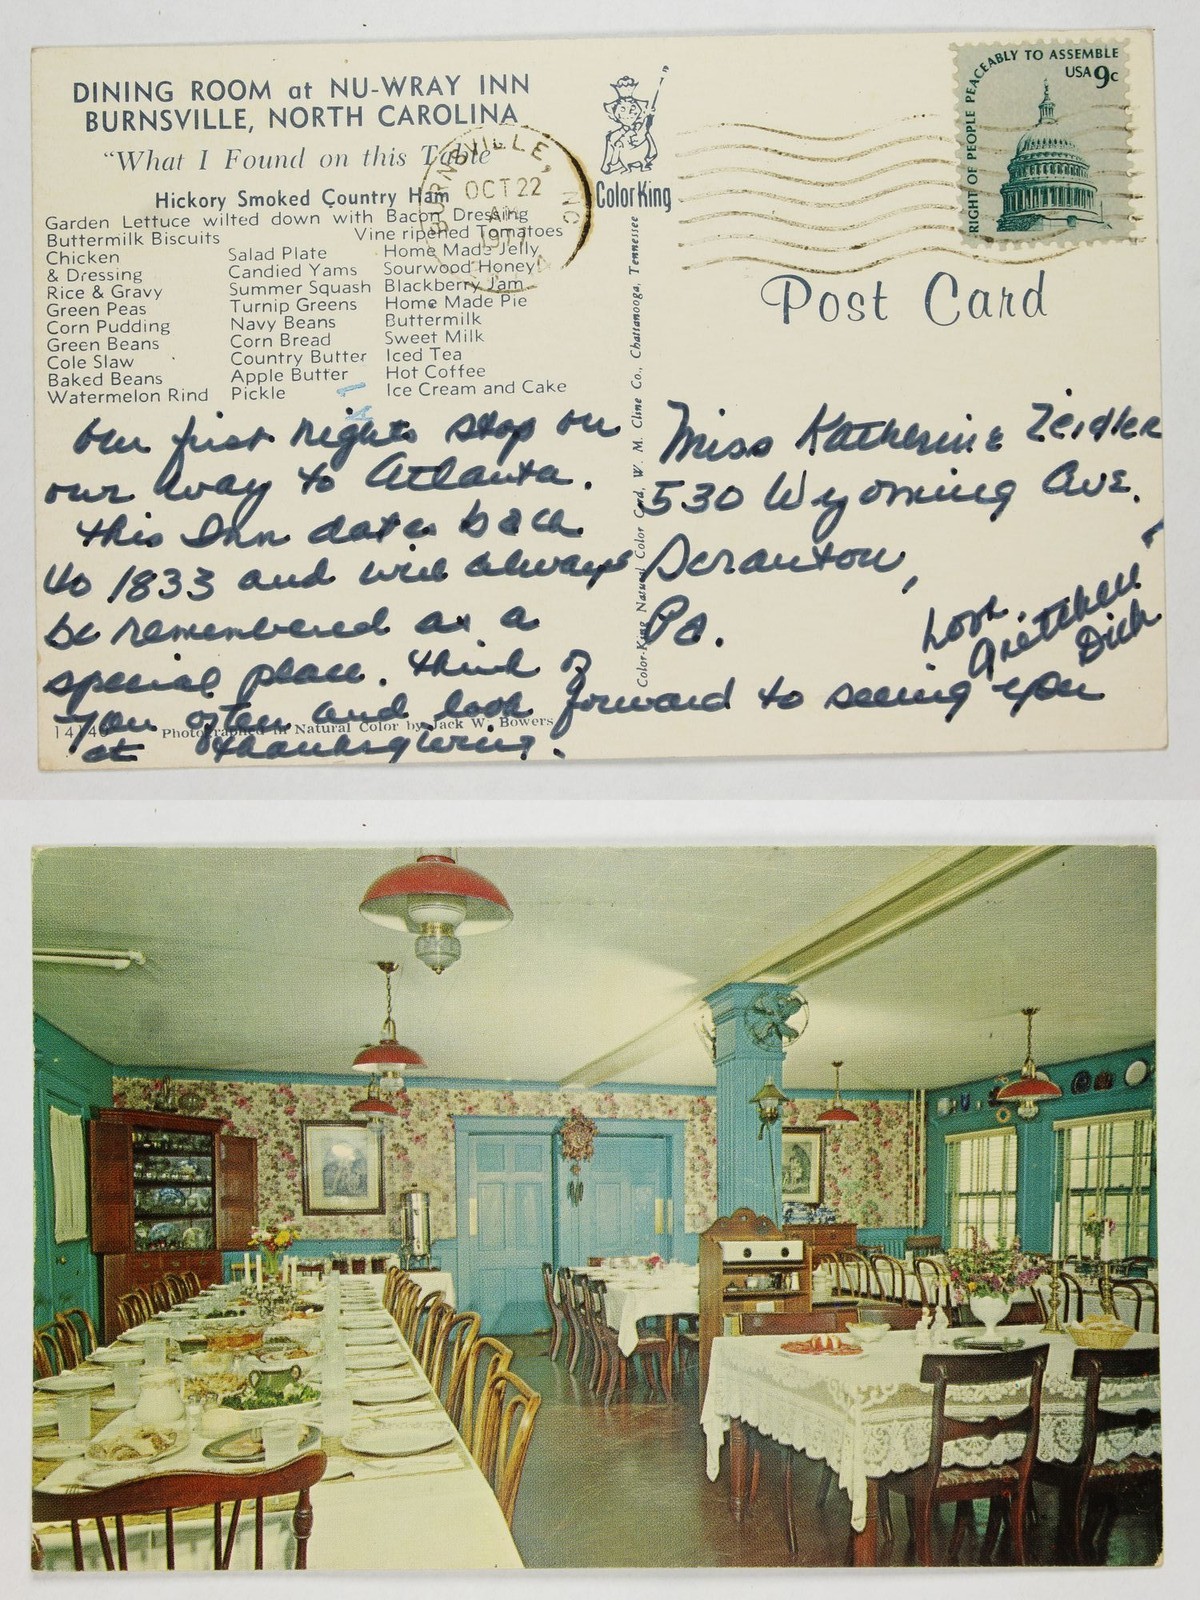 DINING ROOM at NU-WRAY INN
BURNSVILLE, NORTH CAROLINA
"What I Found on this Table"
Hickory Smoked Country Ham
Garden Lettuce wilted down with Bacon Dressing
Buttermilk Biscuits Vine ripened Tomatoes
Chicken Salad Plate Home Made Jelly
& Dressing Candied Yams Sourwood Honey
Rice & Gravy Summer Squash Blackberry Jam
Green Peas Turnip Greens Home Made Pie
Corn Pudding Navy Beans Buttermilk
Green Beans Corn Bread Sweet Milk
Cole Slaw Country Butter Iced Tea
Baked Beans Apple Butter Hot Coffee
Watermelon Rind Pickle Ice Cream and Cake
BURNSVILLE, NC
OCT 22
AM
Color King
RIGHT OF PEOPLE PEACEABLY TO ASSEMBLE
USA 9c
Post Card
Color-King Natural Color Card, W. M. Cline Co., Chattanooga, Tennessee
Our first nights stop on
our way to Atlanta.
This Inn dates back
to 1833 and will always
be remembered as a
special place. Think of
you often and look forward to seeing you
at Thanksgiving.
Love,
Gretchen
Dick
Miss Katherine Zeidler
530 Wyoming Ave.
Scranton,
Pa.
Photographed in Natural Color by Jack W. Bowers